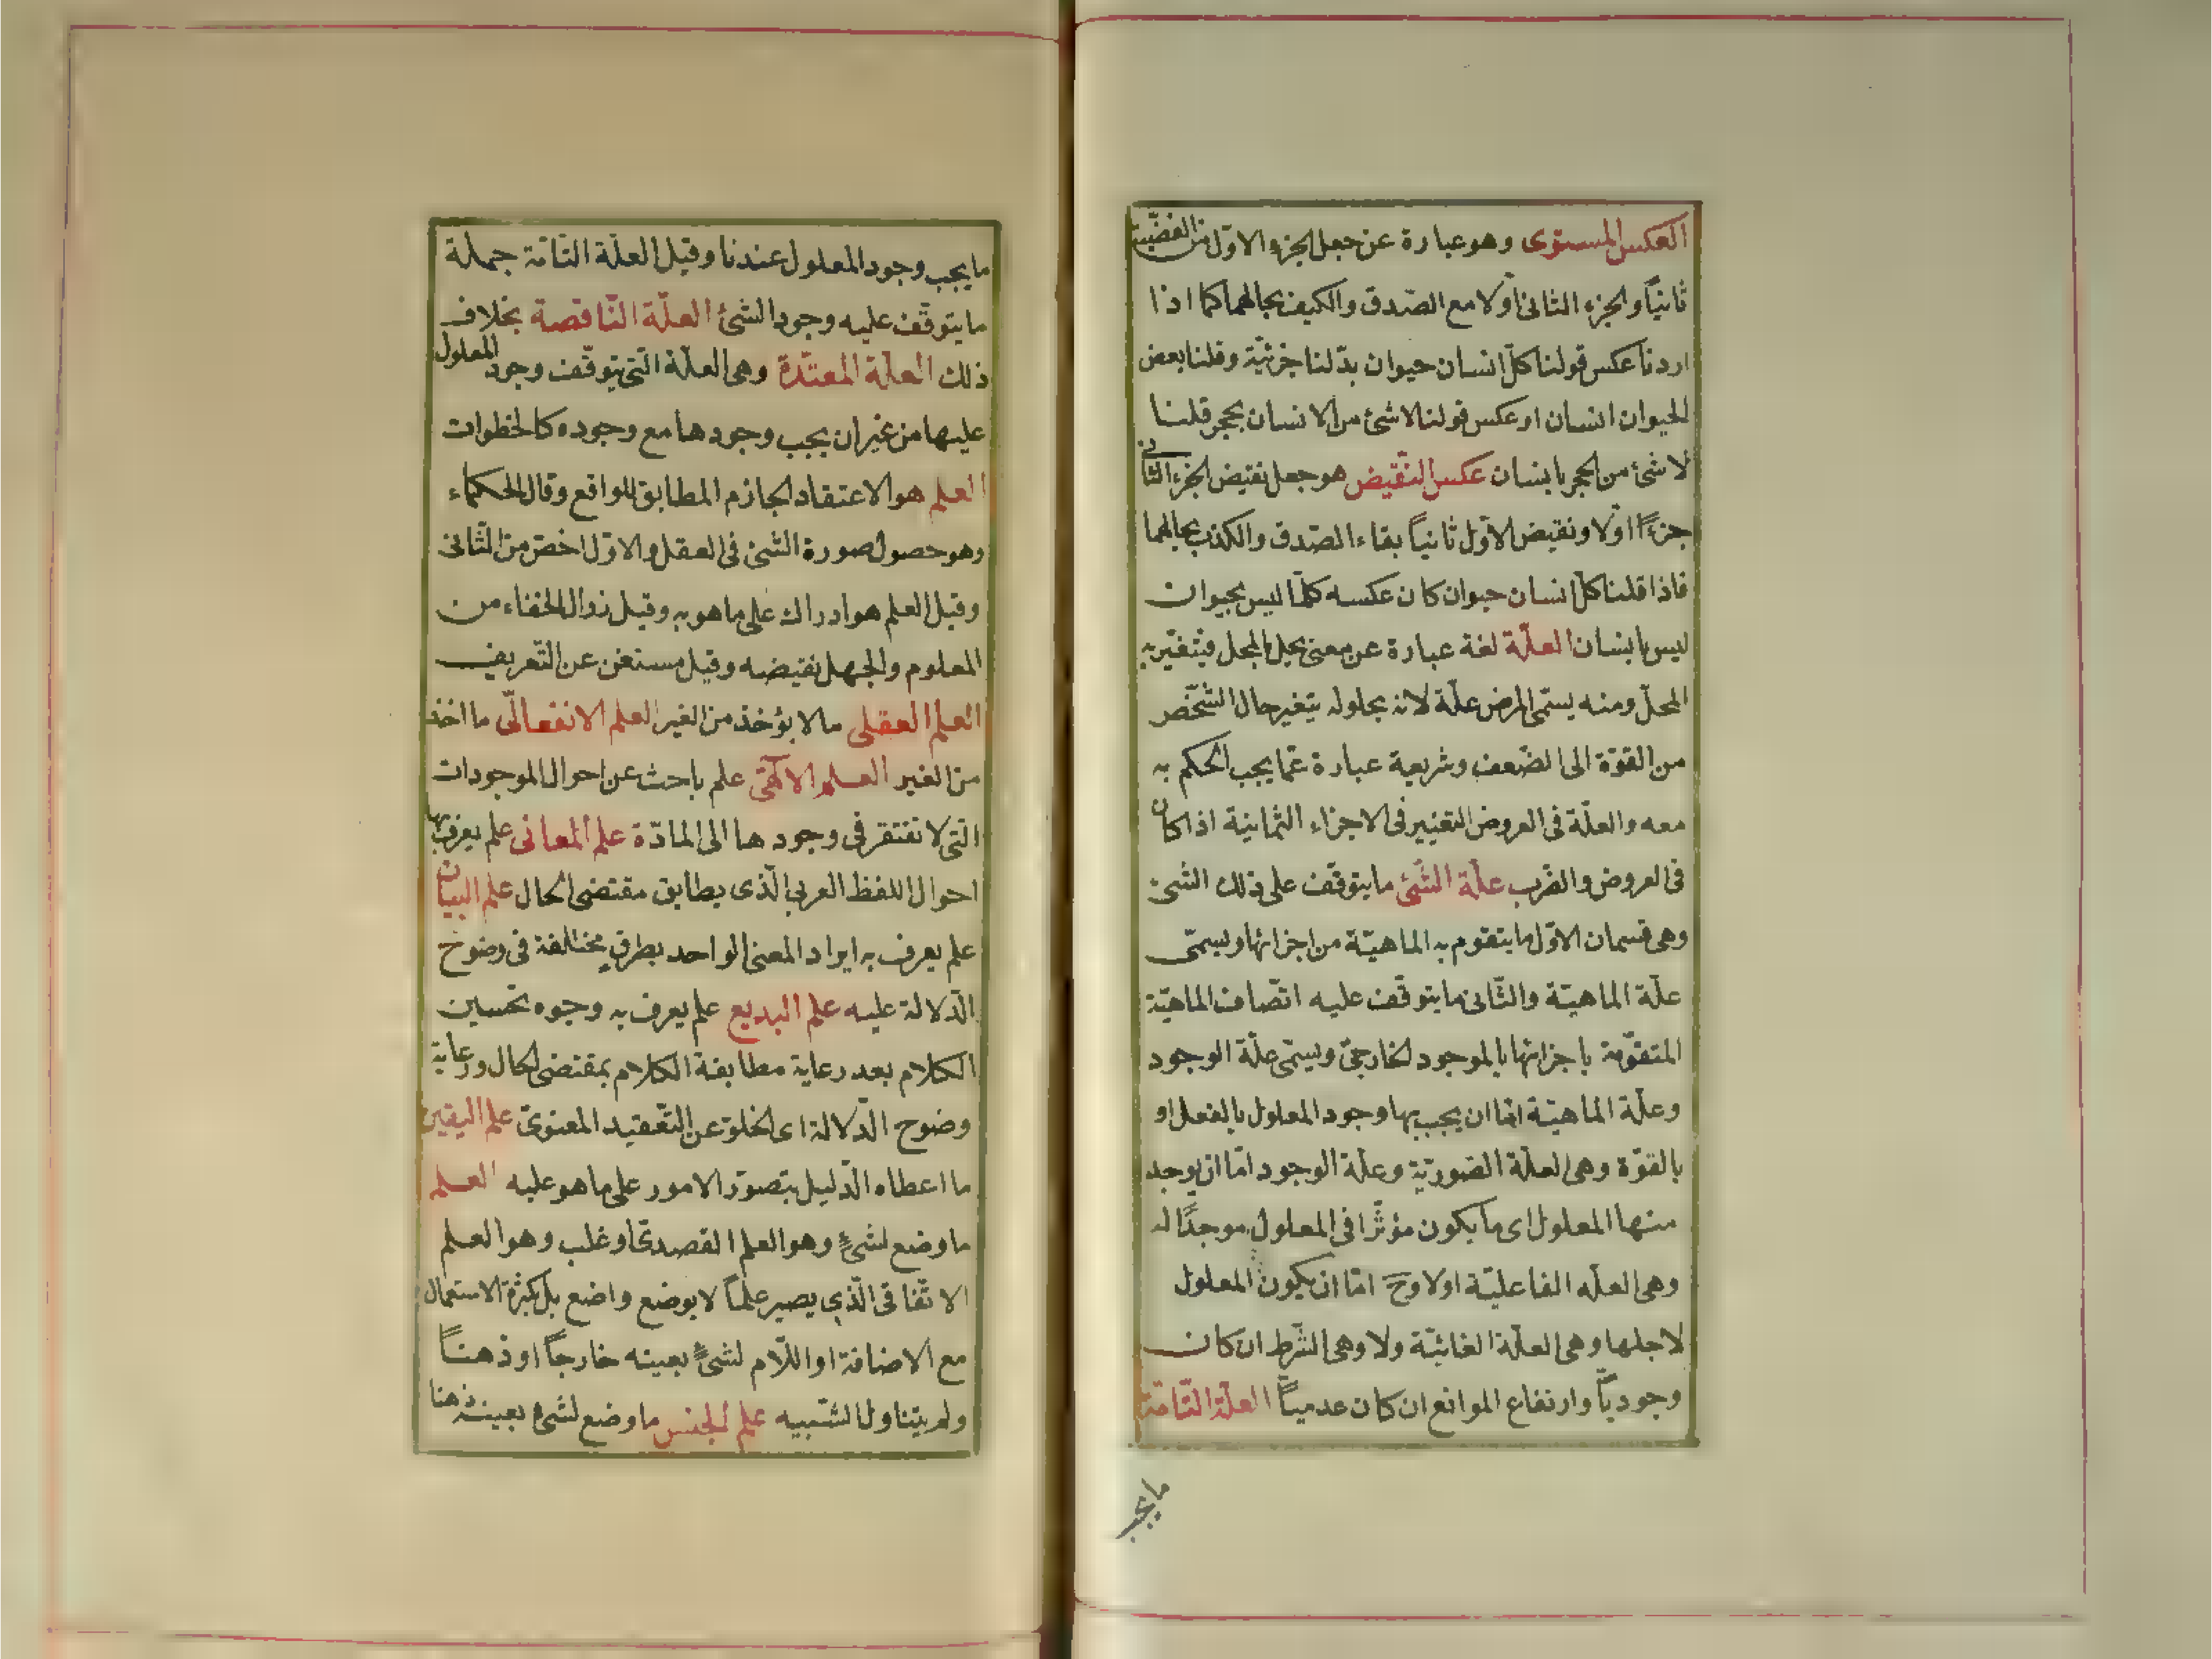 العكس المستوى وهو عبارة عن جعل الجزء الاوّل من القضيّة
ثانياً والجزء الثانى اوّلا مع الصّدق والكيف بحالهما كما اذا
اردنا عكس قولنا كلّ انسان حيوان بدّلنا جزئيّة وقلنا بعض
الحيوان انسان او عكس قولنا لا شئ من الانسان بحجر قلنا
لا شئ من الحجر بانسان عكس النّقيض هو جعل نقيض الجزء الثانى
جزءًا اوّلا ونقيض الاوّل ثانياً بقاء الصّدق والكذب بحالهما
فاذا قلنا كلّ انسان حيوان كان عكسه كلّما ليس بحيوان
ليس بانسان العلّة لغة عبارة عن معنى يحل بالمحل فيتغيّر به
المحلّ ومنه يسمّى المرض علّة لانه بحلوله يتغير حال الشّخص
من القوّة الى الضّعف وشريعة عبارة عمّا يجب الحكم به
معه والعلّة فى العروض التغيير فى الاجزاء الثمانية اذا كان
فى العروض والضّرب علّة الشّئ ما يتوقّف على ذلك الشئ
وهى قسمان الاوّل ما يتقوم به الماهيّة من اجزائها ويسمّى
علّة الماهيّة والثّانى ما يتوقّف عليه اتّصاف الماهيّة
المتقوّمة باجزائها بالموجود الخارجىّ ويسمّى علّة الوجود
وعلّة الماهيّة امّا ان يجب بها وجود المعلول بالفعل او
بالقوّة وهى العلّة الصّوريّة وعلّة الوجود امّا ان يوجد
منها المعلول اى ما يكون مؤثّرا فى المعلول موجدًا له
وهى العلّه الفاعليّة اولا وح امّا ان يكون المعلول
لاجلها وهى العلّة الغائيّة ولا وهى الشّرط ان كان
وجوديّاً وارتفاع الموانع ان كان عدميّاً العلّة التّامّة
ما يجب
ما يجب وجود المعلول عندنا وقيل العلّة التّامّة جملة
ما يتوقّف عليه وجود الشئ العلّة النّاقصة بخلاف
ذلك العلّة المعتدّة وهى العلّة الّتى يتوقّف وجود المعلول
عليها من غير ان يجب وجودها مع وجوده كالخطوات
العلم هو الاعتقاد الجازم المطابق للواقع وقال الحكماء
وهو حصول صورة الشئ فى العقل والاوّل اخصّ من الثّانى
وقيل العلم هو ادراك على ما هو به وقيل زوال الخفاء من
المعلوم والجهل نقيضه وقيل مستغن عن التّعريف
العلم العقلى ما لا يؤخذ من الغير العلم الانفعالّى ما اخذ
من الغير العلم الالٓهىّ علم باحث عن احوال الموجودات
الّتى لا تفتقر فى وجودها الى المادّة علم المعانى علم يعرف بها
احوال اللفظ العربى الّذى يطابق مقتضى الحال علم البيان
علم يعرف به ايراد المعنى الواحد بطرقٍ مختلفة فى وضوح
الدّلالة عليه علم البديع علم يعرف به وجوه تحسين
الكلام بعد رعاية مطابقة الكلام بمقتضى الحال ورعاية
وضوح الدّلالة اى الخلوّ عن التّعقيد المعنوىّ علم اليقين
ما اعطاه الدّليل بتصوّر الامور على ما هو عليه العلم
ما وضع لشئٍ وهو العلم القصدىّ او غلب وهو العلم
الاتّفاقى الّذى يصير علماً لا بوضع واضع بل بكثرة الاستعمال
مع الاضافة او اللّام لشئٍ بعينه خارجاً او ذهناً
ولم يتناول الشّبيه علم الجنس ما وضع لشئ بعينه ذهنا